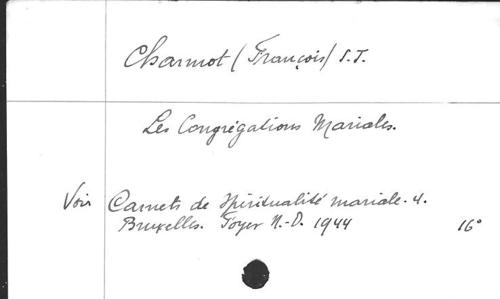 Charmot (François) S.J.
Les Congrégations Mariales.
Voir Carnets de Spiritualité mariale. 4.
Bruxelles. Foyer N.-D. 1944 16°